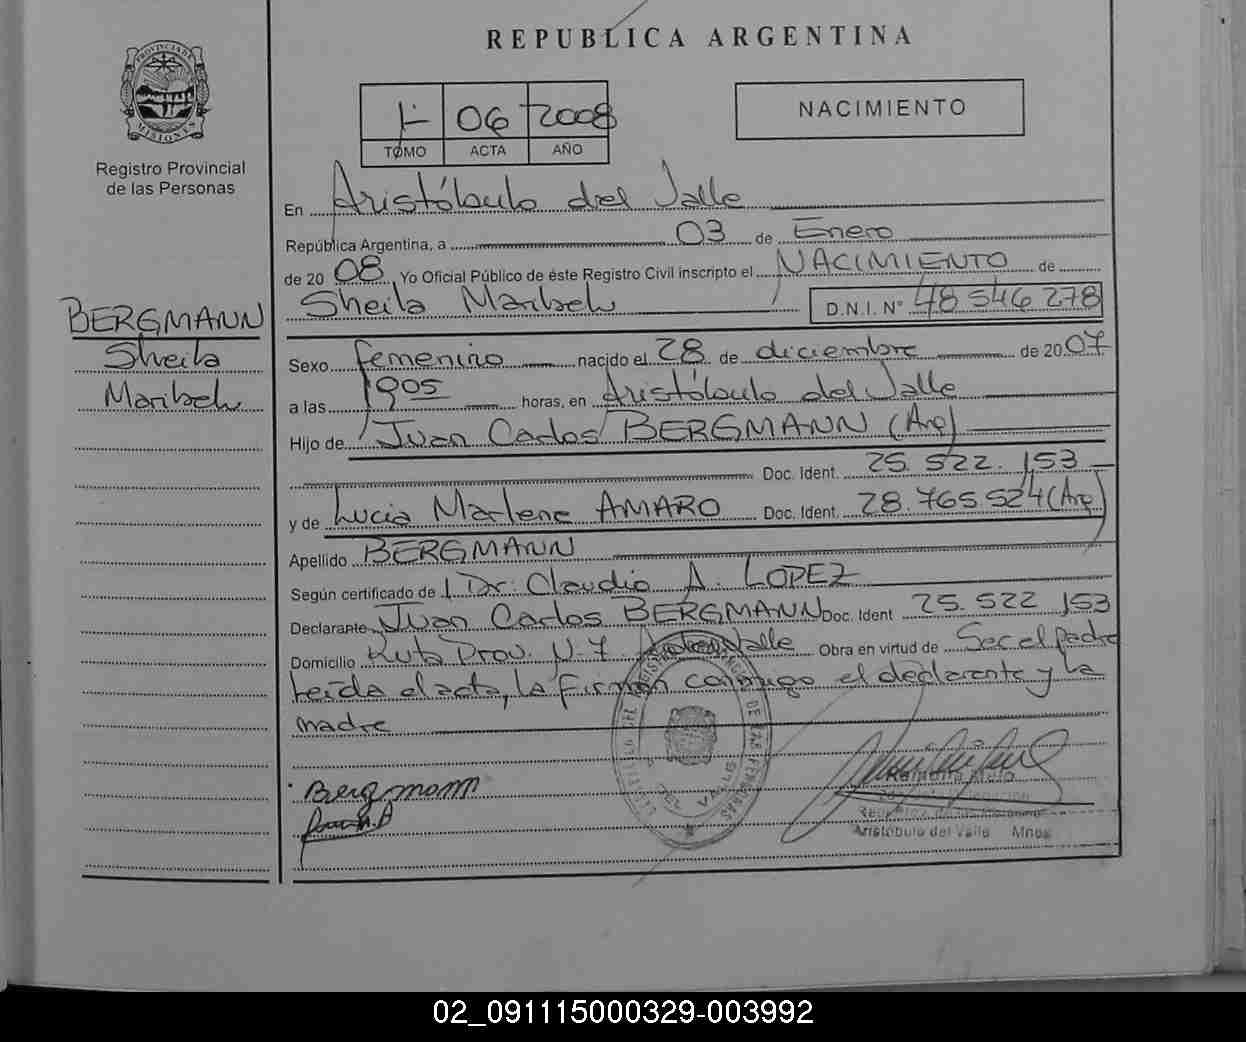 REPUBLICA ARGENTINA
PROVINCIA DE
MISIONES
Registro Provincial
de las Personas
1- 06 2008
TOMO ACTA AÑO
NACIMIENTO
En Aristóbulo del Valle
República Argentina, a 03 de Enero
de 20 08 Yo Oficial Público de éste Registro Civil inscripto el NACIMIENTO de
Sheila Maribel D.N.I. N° 48 546 278
BERGMANN
Sheila
Maribel
Sexo femenino nacido el 28 de diciembre de 20 07
a las 1905 horas, en Aristóbulo del Valle
Hijo de Juan Carlos BERGMANN (Arg)
Doc. Ident. 25. 522. 153
y de Lucia Marlene AMARO Doc. Ident. 28.765.524 (Arg)
Apellido BERGMANN
Según certificado de Dr. Claudio A. LOPEZ
Declarante Juan Carlos BERGMANN Doc. Ident 25. 522 153
Domicilio Ruta Prov. N-7 Valle Obra en virtud de Ser el padre
Leída el acta, la firman conmigo el declarante y la
madre
Bergmann
Aristóbulo del Valle Mnes
02_091115000329-003992